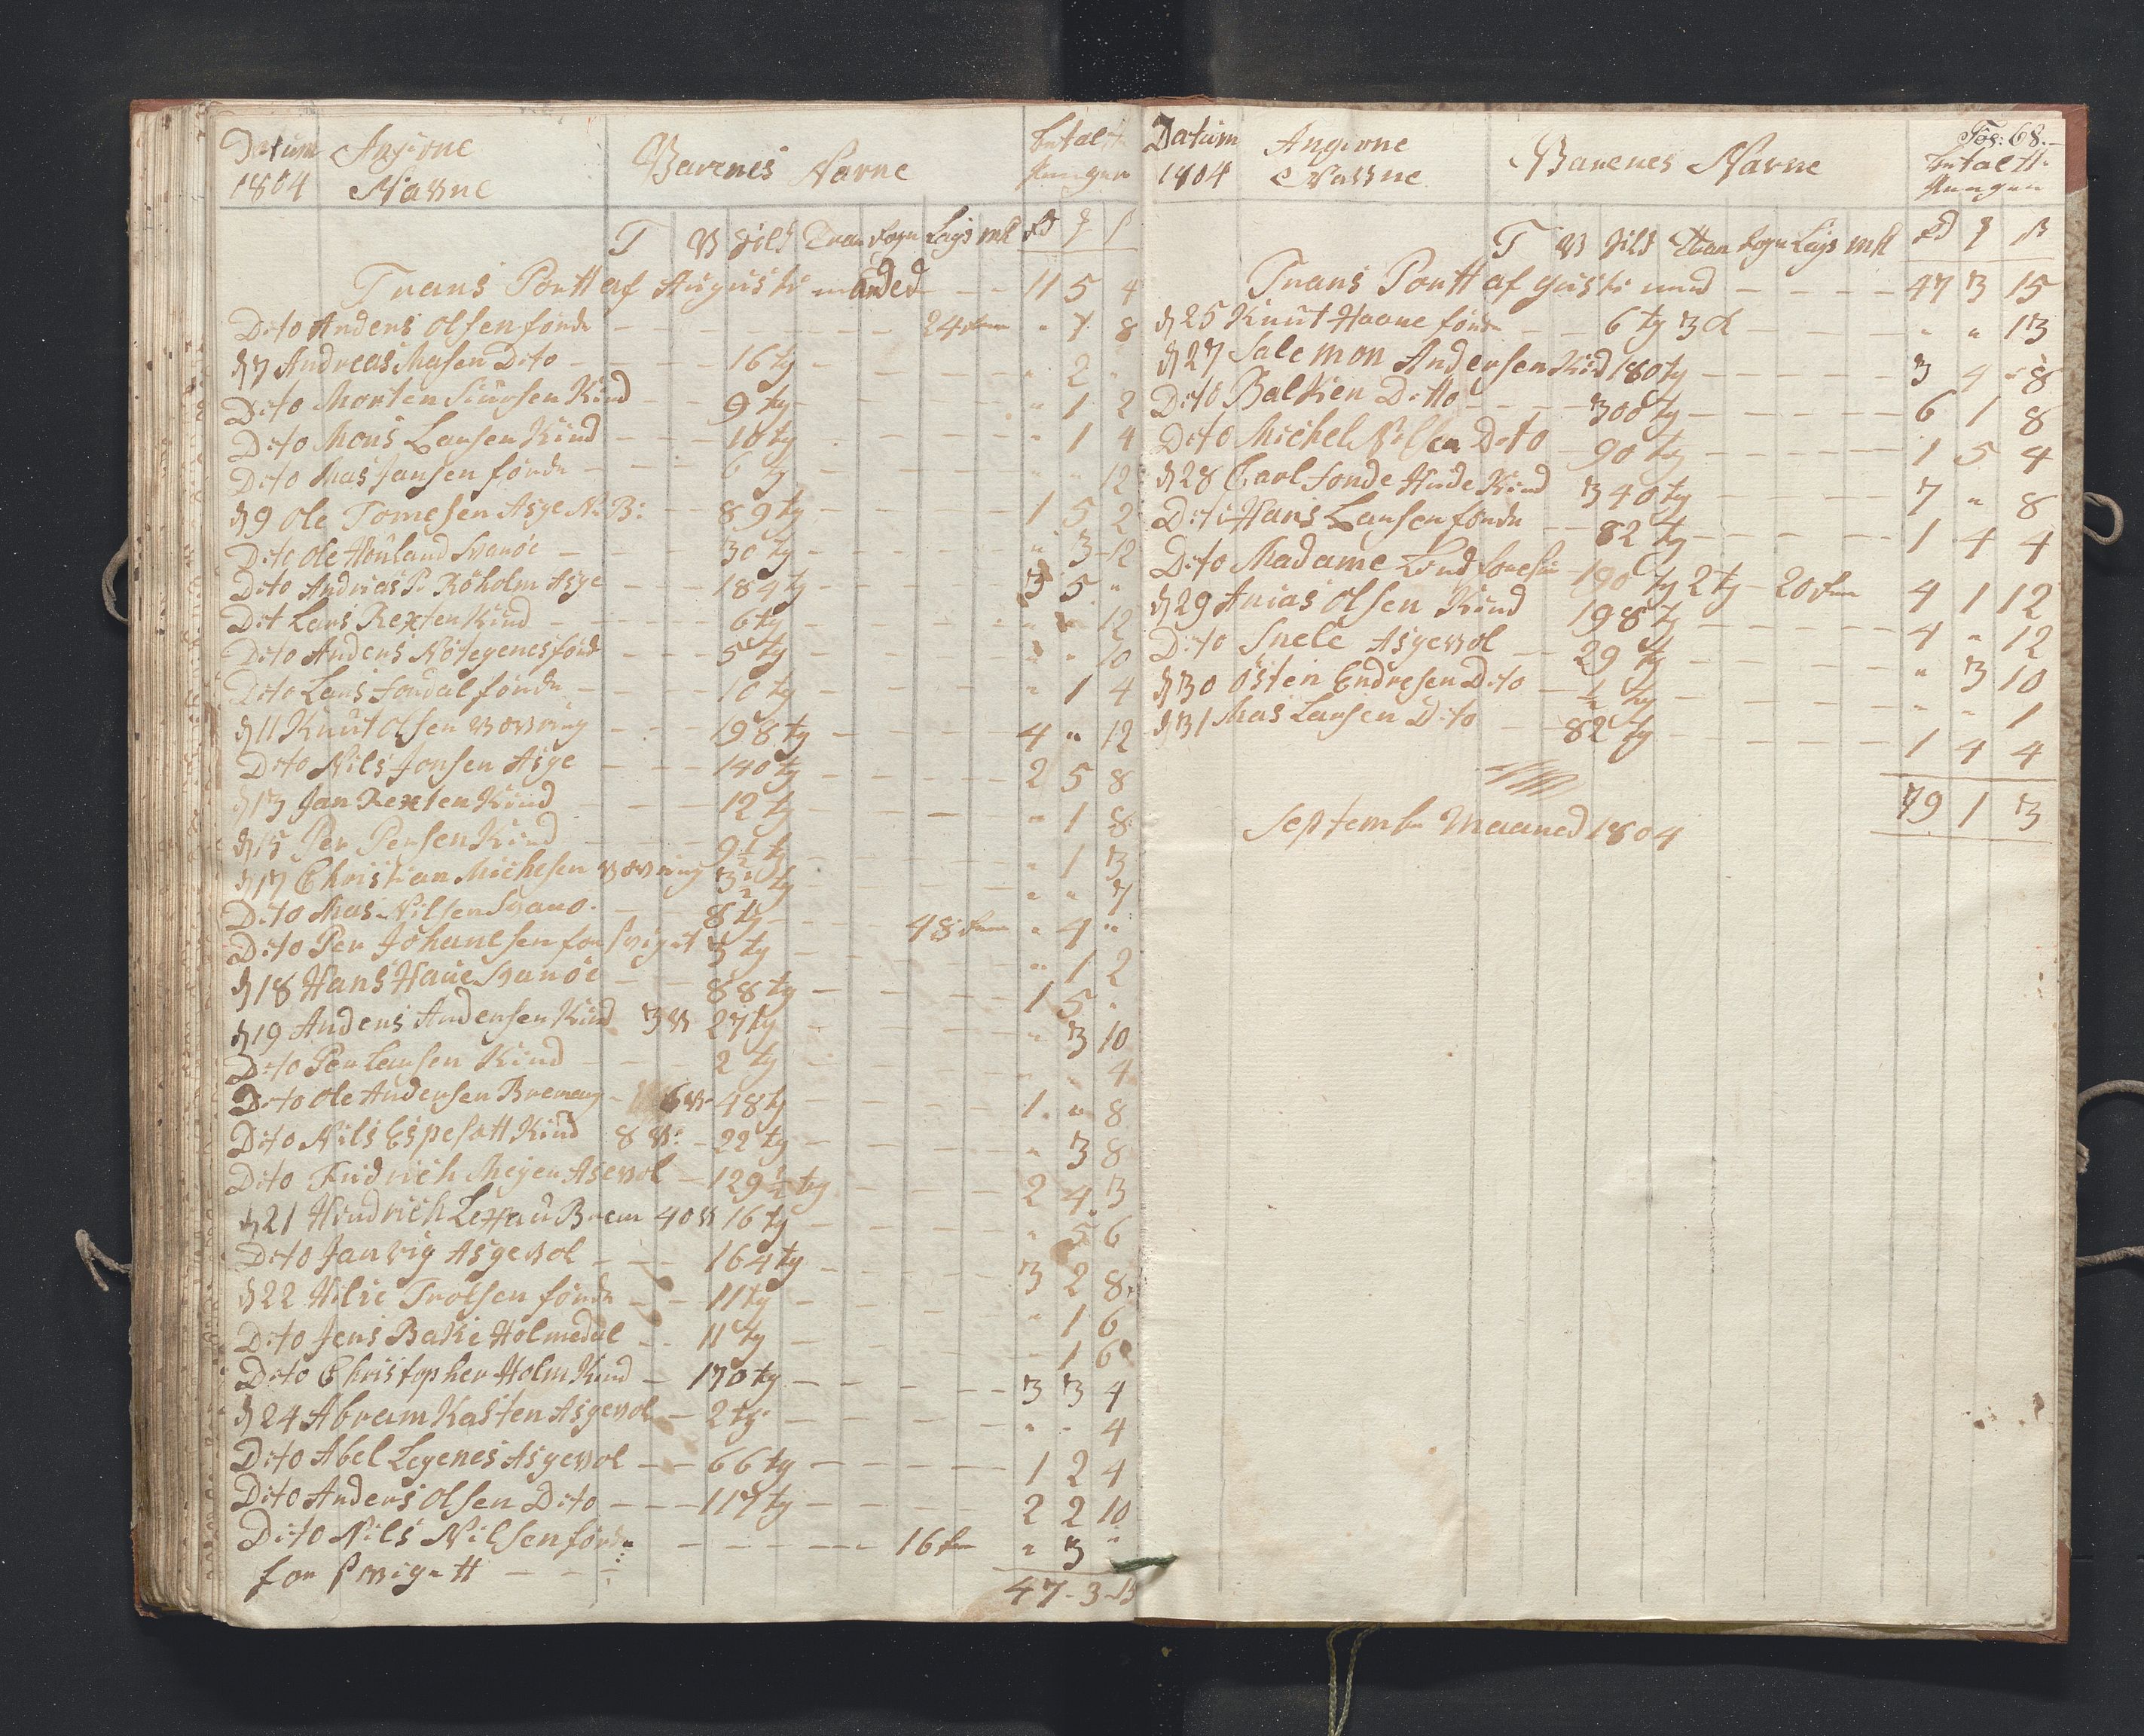 Datum Angivne Varenes Navne betalt
1804 Navne Pungen
T V Sild Tran Rogn Lags mk rd ʒ ß
Trans Portt af Augusti maaned - - 11 5 4
Dito Anders Olsen førde - - - 24 - " 1 8
d 7 Andreas Masen Dito - - 16 ty - - " 2 "
Dito Morten Siursen Kind - - 9 ty - - " 1 2
Dito Mons Larsen Kind - - 10 ty - - " 1 4
Dito Mas Jansen førde - - 6 ty - - " " 12
d 9 Ole Tomesen Asge N B: - - 89 ty - - 1 5 2
Dito Ole Houland Svanöe - - 30 ty - - " 3 12
Dito Andreas P. Röholm Asge - - 184 ty - - 3 5 "
Dit Lars Rexten Kind - - 6 ty - - " " 12
Dito Anders Nötegenes förde - - 5 ty - - " " 10
Dito Lars fordal förde - - 10 ty - - " 1 4
d 11 Knut Olsen - - 198 ty - - 4 " 12
Dito Nils Jonsen Asge - - 140 ty - - 2 5 8
d 13 Jan Rexten Kind - - 12 ty - - " 1 8
d 15 Per Persen Kind - - 9 1/2 ty - - " 1 3
d 17 Christian Michesen 3 1/2 ty - - " " 7
Dito Mas Nilsen Svanö - - 8 ty - - 48 - " 4 "
Dito Per Johanesen for Sviget 5 ty - - " 1 2
d 18 Hans Haue Svanöe - - 88 ty - - 1 5 "
d 19 Anders Andersen Kind 3 V 27 ty - - " 3 10
Dito Per Larsen Kind - - 2 ty - - " " 4
Dito Ole Andersen Bremang - 6 V - 48 ty - - 1 " 8
Dito Nils Espesatt Kind 8 V: - 22 ty - - " 3 8
Dito Fridrich Meyer Asevol - 129 1/2 ty - - 2 4 3
d 21 Hindrich Brem 40 V 16 ty - - " 5 6
Dito Jan vig Asgevol - - 164 ty - - 3 2 8
d 22 Hilic Trolsen förde - - 11 ty - - " 1 6
Dito Jens Bakie Holmedal - - 11 ty - - " 1 6
Dito Christopher Holm Kind - 170 ty - - 3 3 4
d 24 Abram Kasten Asgevol - 2 ty - - " " 4
Dito Abel Legenes Asgevol - - 66 ty - - 1 2 4
Dito Anders Olsen Dito - - 117 ty - - 2 2 10
Dito Nils Nilsen förde - - - 16 - " 3 "
for Svigett - - -
47 - 3 - 15
Fos: 68.
Datum Angivne Varenes Navne betaltt
1804 Navne Pungen
T V Sild Tran Rogn Lags mk rd ʒ ß
Trans Portt af gusti mnd - - 47 3 15
d 25 Knut Haave förde - - 6 ty 3 - - " " 13
d 27 Salemon Andersen Kid 180 ty - - 3 4 8
Dito Balkien Ditto - - 300 ty - - 6 1 8
Dito Michel Nilsen Dito - 90 ty - - 1 5 4
d 28 Carl fonde Hude Kind 340 ty - - 7 " 8
Dito Hans Larsen förde - - 82 ty - - 1 4 4
Dito Madame Lind - 190 ty 2 ty - 20 - 4 1 12
d 29 Anias Olsen Kind 198 ty - - 4 " 12
Dito Snele Asgevol - 29 ty - - " 3 10
d 30 Östen Endresen Dito - 1/2 ty - - " " 1
d 31 Mas Larsen Dito - 82 ty - - 1 4 4
79 1 3
Septembr Maaned 1804